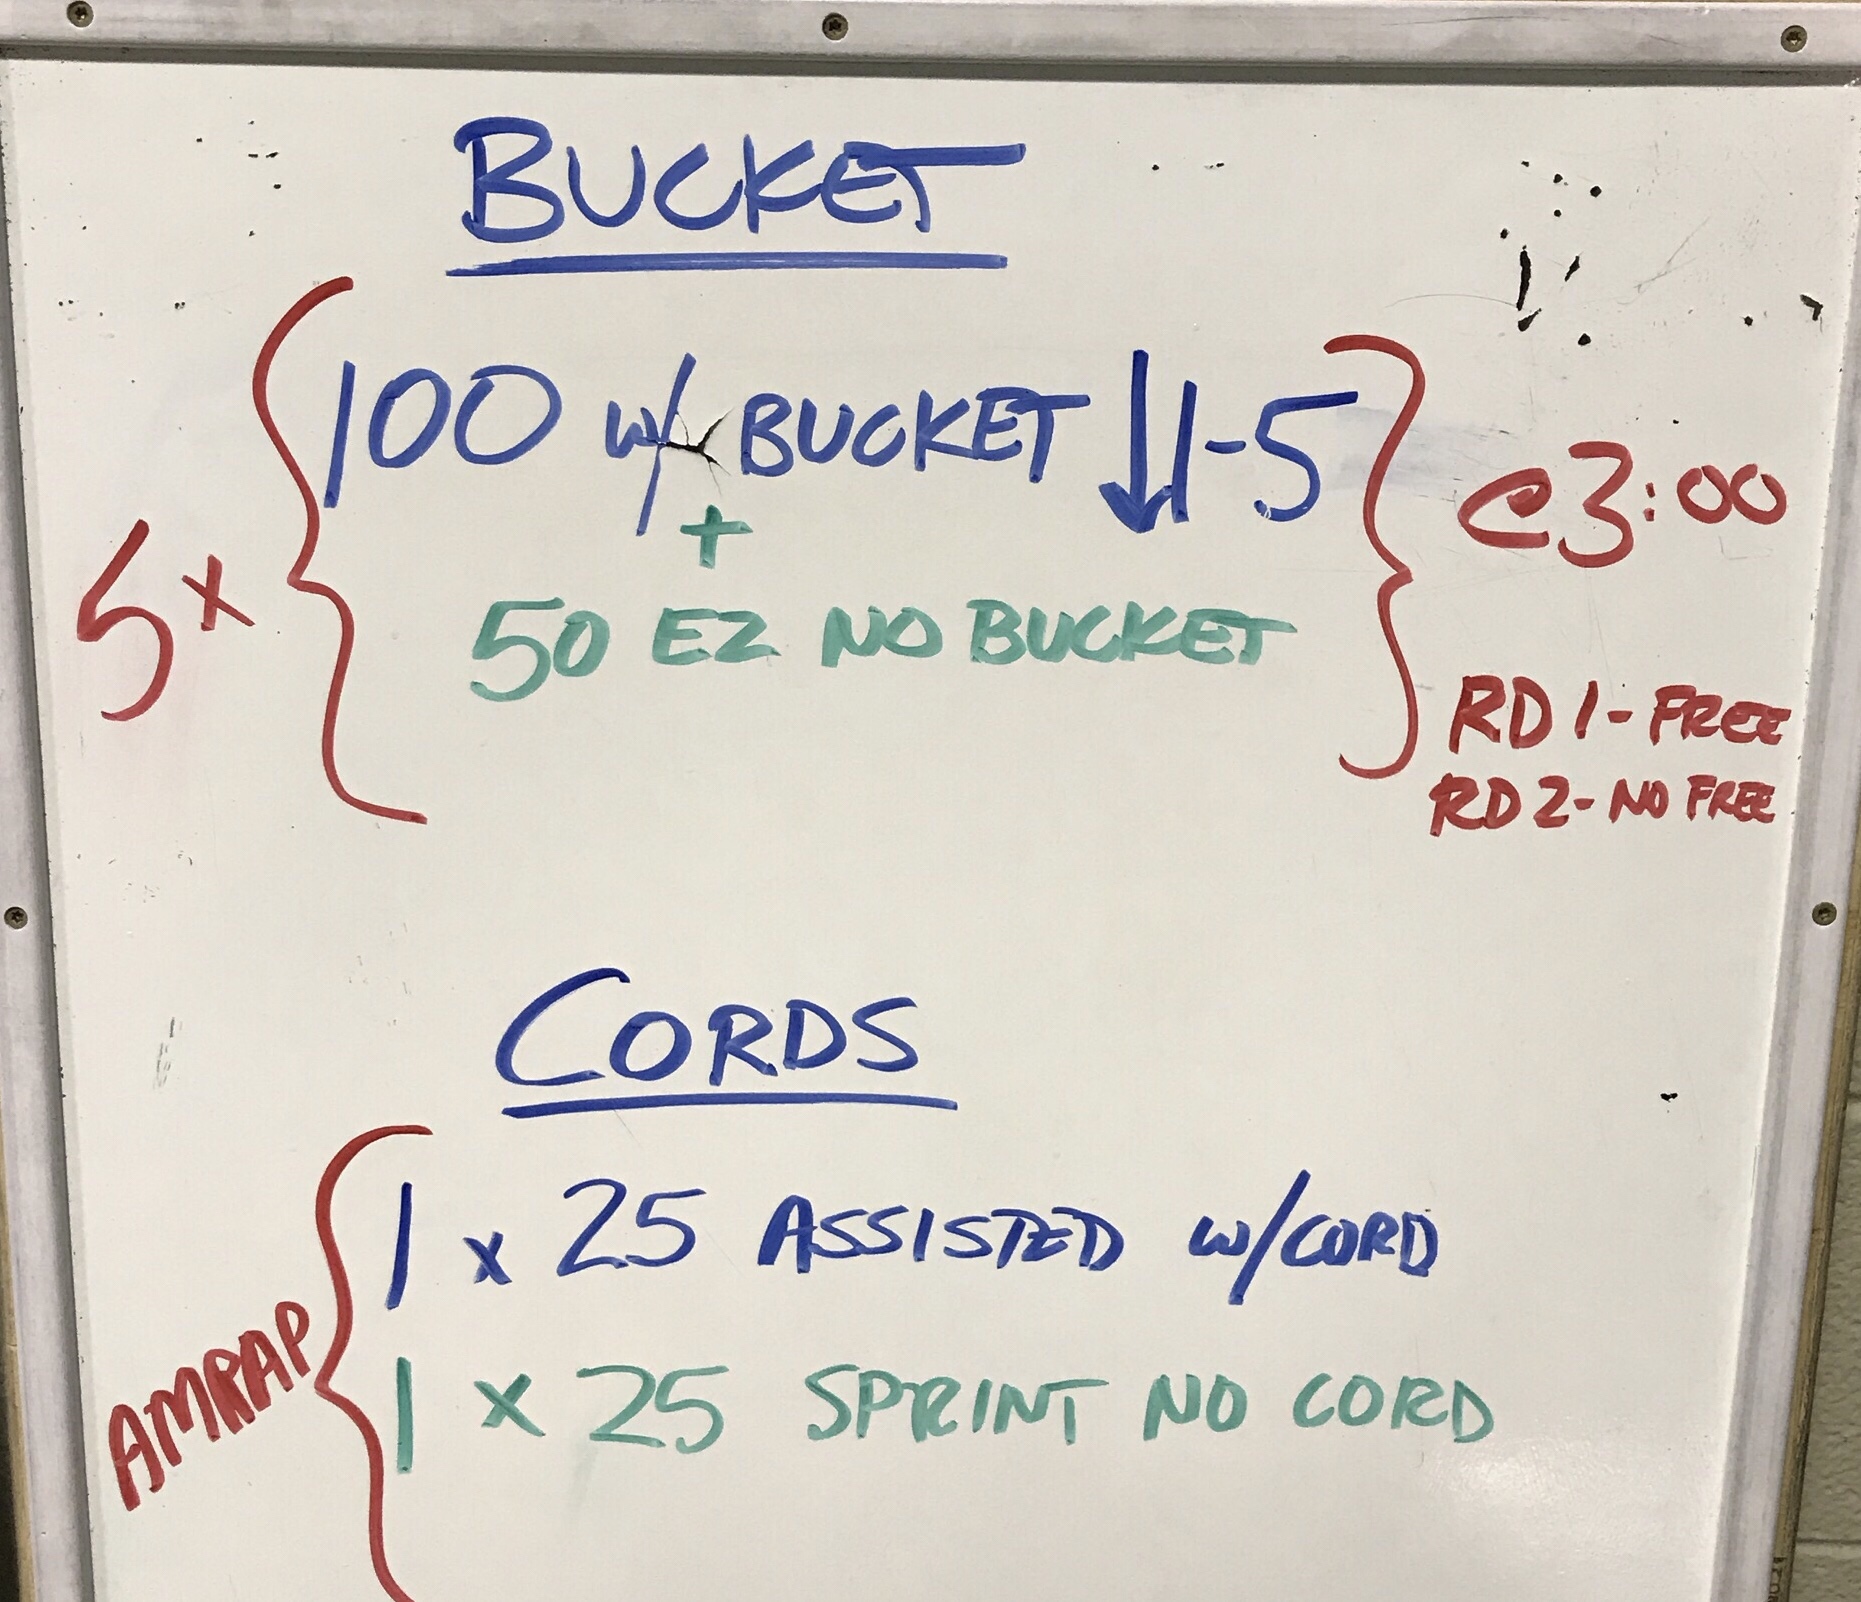 BUCKET
5x { 100 w/ BUCKET ↓1-5 } @3:00
+
50 EZ NO BUCKET
RD 1 - FREE
RD 2 - NO FREE
CORDS
AMRAP { 1 x 25 ASSISTED w/CORD
1 x 25 SPRINT NO CORD